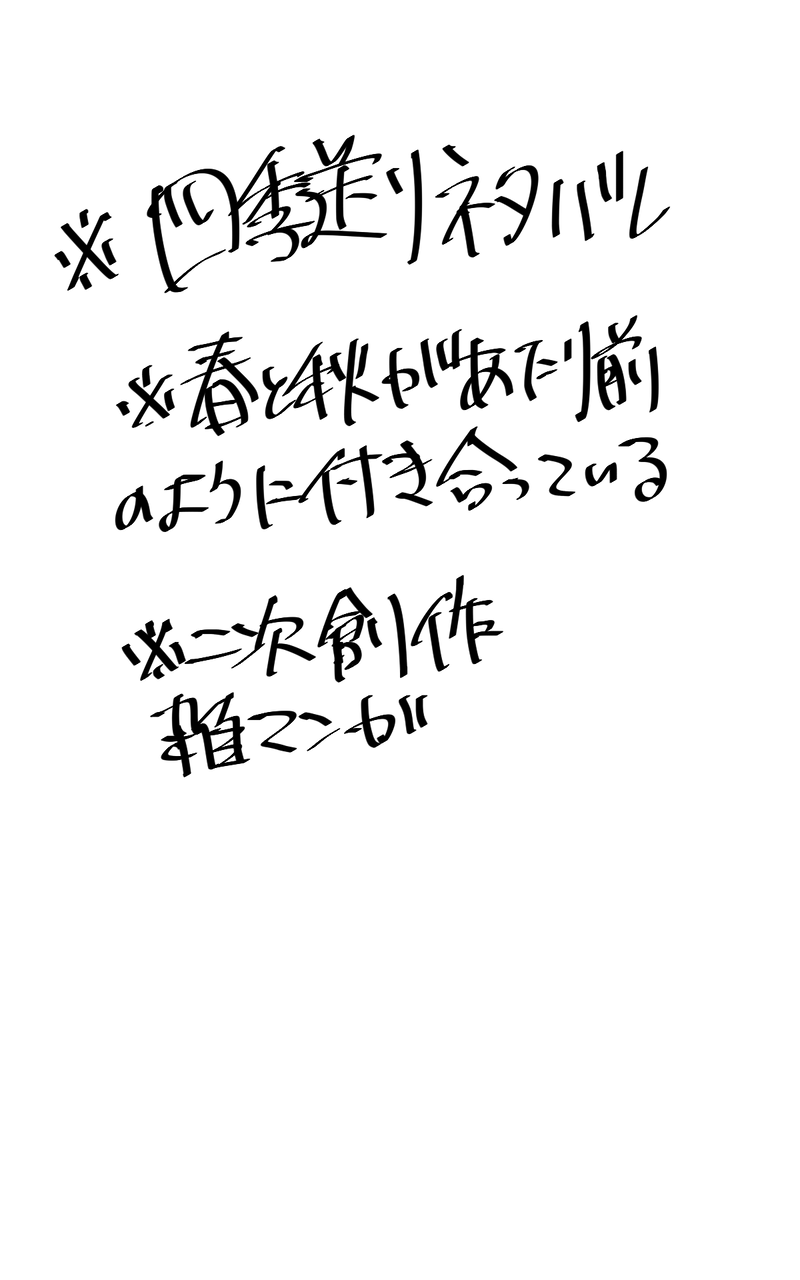 ※四季送りネタバレ
※春と秋があたり前
のように付き合っている
※二次創作
雑マンガ